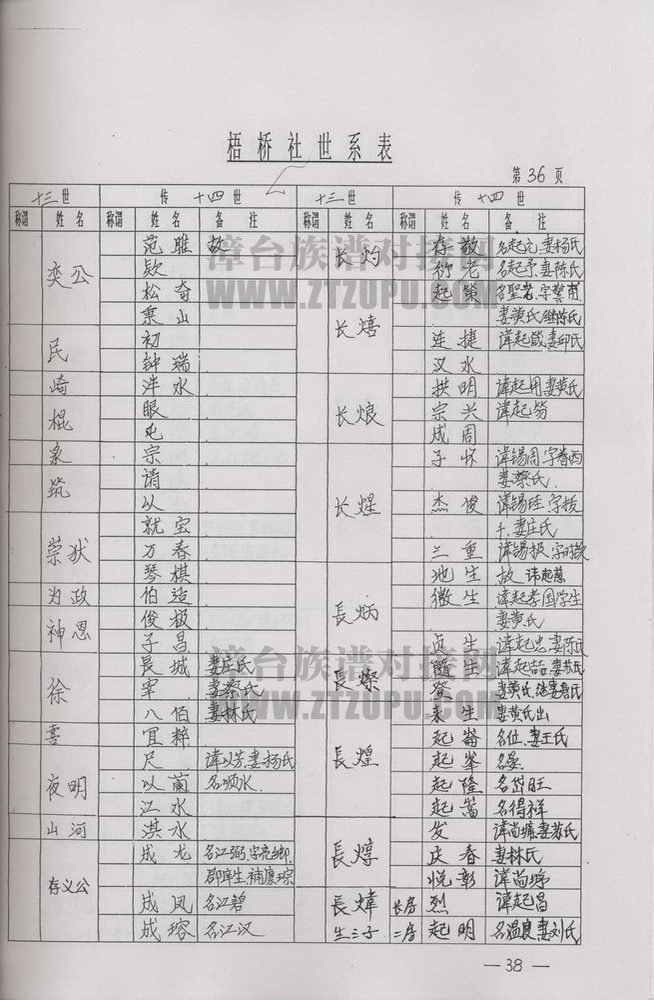 梧桥社世系表
第36页
十三世 传 十四世 十三世 传 十四世
称谓 姓名 称谓 姓名 备注 称谓 姓名 称谓 姓名 备注
奕公 范雎 故
欵
松奇
秉山
民 初
钟瑞
崎 泮水
棍 眼
屯
泉 宗
筑 请
以
崇狀 就宝
万春
琴棋
为政 伯造
神恩 俊极
子昌
徐 長城 妻庄氏
宰 妻蔡氏
八伯 妻林氏
喜 宜粹
夜明 尺 讳以芳妻杨氏
以蘭 名须水
江水
山河 淇水
存义公 成龙 名江弼字亮卿
郡庠生補廪
成凤 名江碧
成瑢 名江汉
长灼 存敬 名起元妻杨氏
起予妻陈氏
起策 名聖若字警甫
妻黄氏继陈氏
长熺 连捷 讳起箴妻邱氏
义水
长烺 拱明 讳起用妻黄氏
宗兴 讳起
成周
长煋 子怀 讳锡周字眷西
妻蔡氏
杰俊 讳锡珪字拔
十妻庄氏
三重 讳锡极
長炳 池生 故 讳起慈
徽生 讳起孝国学生
妻黄氏
長燦 贞生 讳起忠妻陈氏
随生 讳起喆妻苏氏
登 妻黄氏继妻唐氏
来生 妻黄氏出
長煌 起崙 名位妻王氏
起峯 名晏
起隆 名岱旺
起嵩 名得祥
長焞 发 讳尚墉妻苏氏
庆春 妻林氏
悦彰 讳尚
長煒 长房 烈 讳起昌
生三子 二房 起明 名温良妻刘氏
—38—
漳台族谱对接网
WWW.ZTZUPU.COM
漳台族谱对接网
WWW.ZTZUPU.COM